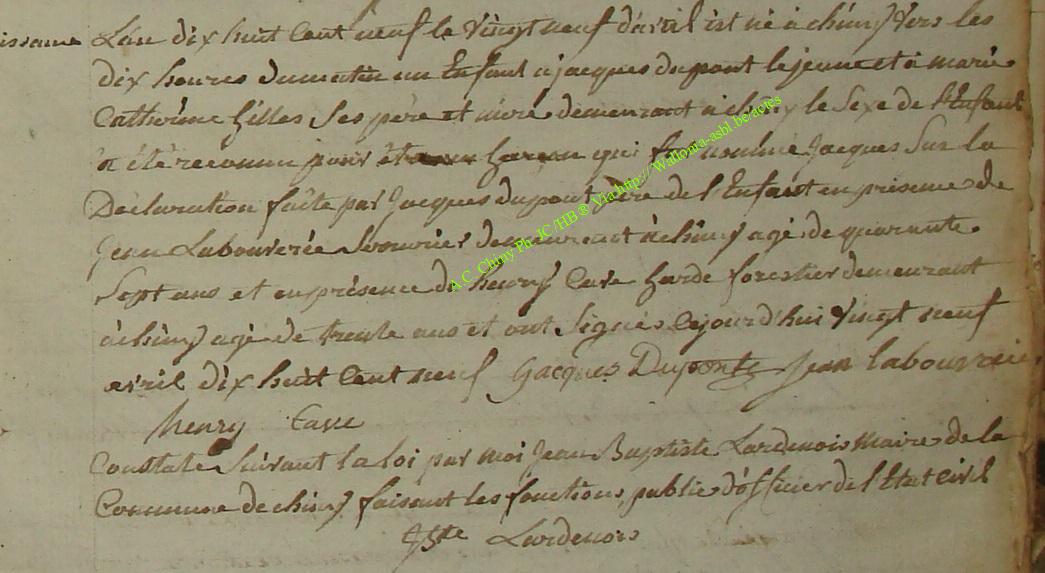 issance Lan dix huit Cent neuf le vingt neuf d'avril est né à chiny vers les
dix heures du matin un Enfant a jacques dupont le jeune et à marie
Catherine Gilles Ses père et mère demeurant à chiny le Sexe de l'Enfant
a été reconnu pour être un Garcon qui fut nommé Jacques Sur la
Déclaration faite par Jacques dupont père de l'Enfant en présence de
Jean Labouverie demeurant à chiny agé de quarante
Sept ans et en présence de henry Cave Garde forestier demeurant
à chiny agé de trente ans et ont Signés Cejourd'hui vingt neuf
avril dix huit Cent neuf Gacques Duponts Jean labouvrie
henry Cave
Constaté Suivant la loi par moi Jean Baptiste Lardenois maire de la
Commune de chiny faisant les fonctions public d'officier de l'Etat Civil
JBte Lardenois
A.C. Chiny Ph. JC /HB ® Via http:// Wallonia-asbl.be/actes